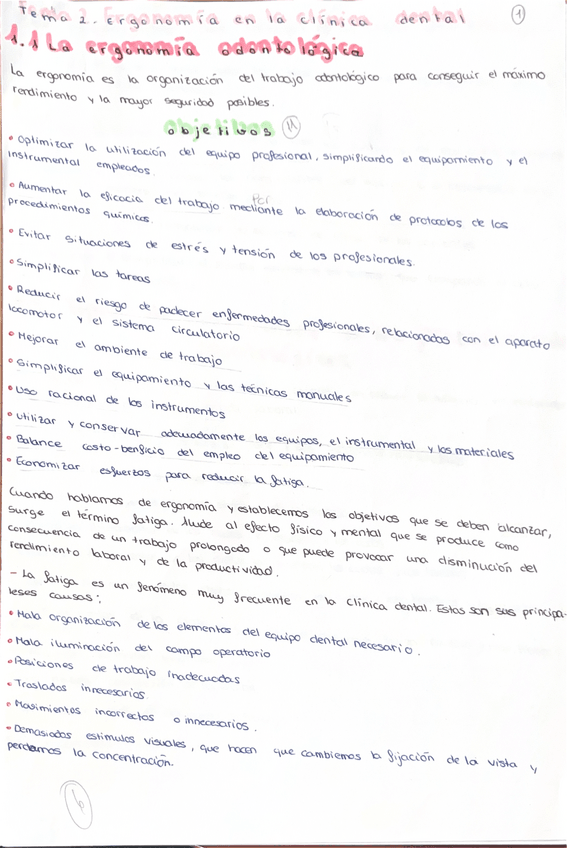 Tema 2. Ergonomía en la clínica dental 1
1.1 La ergonomía odontológica
La ergonomía es la organización del trabajo odontológico para conseguir el máximo
rendimiento y la mayor seguridad posibles.
objetivos 11
• Optimizar la utilización del equipo profesional, simplificando el equipamiento y el
instrumental empleados.
• Aumentar la eficacia del trabajo mediante la elaboración de protocolos de los
procedimientos químicos.
• Evitar situaciones de estrés y tensión de los profesionales.
• Simplificar las tareas
• Reducir el riesgo de padecer enfermedades profesionales, relacionadas con el aparato
locomotor y el sistema circulatorio
• Mejorar el ambiente de trabajo
• Simplificar el equipamiento y las técnicas manuales
• Uso racional de los instrumentos
• Utilizar y conservar adecuadamente los equipos, el instrumental y los materiales
• Balance costo-beneficio del empleo del equipamiento
• Economizar esfuerzos para reducir la fatiga.
Cuando hablamos de ergonomía y establecemos los objetivos que se deben alcanzar,
surge el término fatiga. Alude al efecto físico y mental que se produce como
consecuencia de un trabajo prolongado o que puede provocar una disminución del
rendimiento laboral y de la productividad.
- La fatiga es un fenómeno muy frecuente en la clínica dental. Estas son sus principa-
leses causas:
• Mala organización de los elementos del equipo dental necesario.
• Mala iluminación del campo operatorio
• Posiciones de trabajo inadecuadas
• Traslados innecesarios
• Movimientos incorrectos o innecesarios.
• Demasiados estimulos visuales, que hacen que cambiemos la fijación de la vista y
perdamos la concentración.
6